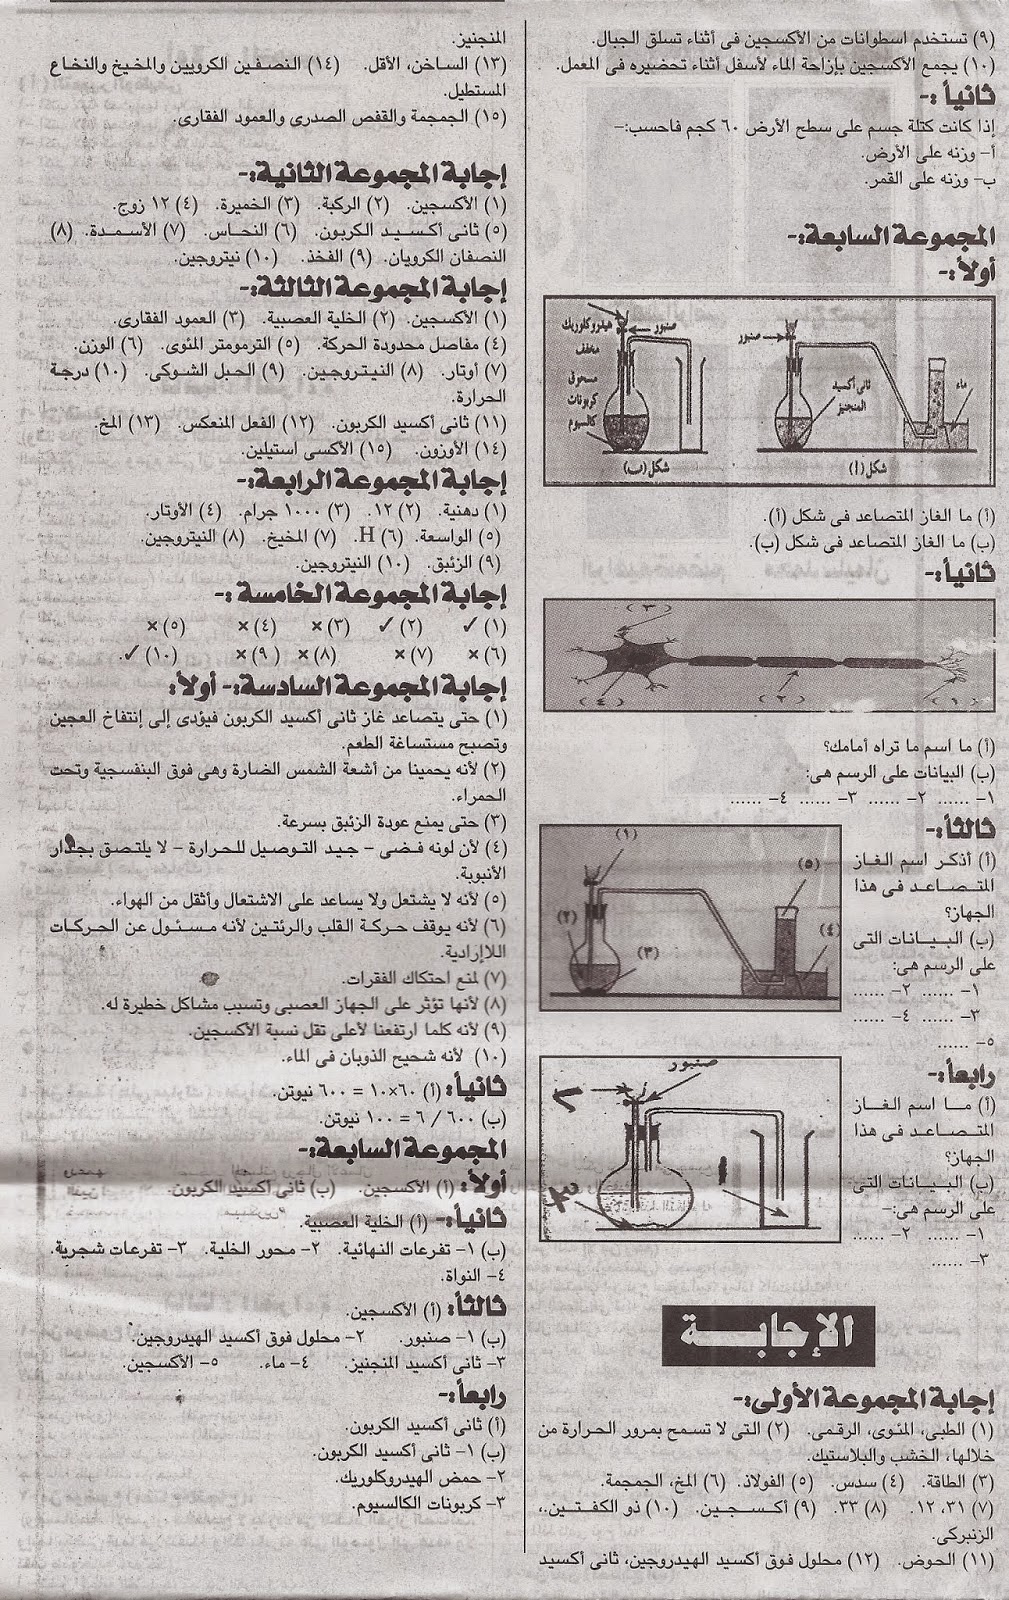 (٩) تستخدم اسطوانات من الأكسجين فى أثناء تسلق الجبال.
(١٠) يجمع الأكسجين بإزاحة الماء لأسفل أثناء تحضيره فى المعمل.
ثانياً :-
إذا كانت كتلة جسم على سطح الأرض ٦٠ كجم فاحسب:-
أ- وزنه على الأرض.
ب- وزنه على القمر.
المجموعة السابعة:-
أولاً:-
صنبور
ثانى أكسيد
المنجنيز
ماء
شكل (أ)
هيدروكلوريك
مخفف
صنبور
مسحوق
كربونات
كالسيوم
شكل (ب)
(أ) ما الغاز المتصاعد فى شكل (أ).
(ب) ما الغاز المتصاعد فى شكل (ب).
ثانياً:-
(٣)
(٤) (٢) (١)
(أ) ما اسم ما تراه أمامك؟
(ب) البيانات على الرسم هى:
١- ...... ٢- ...... ٣- ...... ٤- ......
ثالثاً:-
(أ) أذكر اسم الغاز
المتصاعد فى هذا
الجهاز؟
(ب) البيانات التى
على الرسم هى:
١- ...... ٢- ......
٣- ...... ٤- ......
٥- ......
(١)
(٥)
(٢)
(٤)
(٣)
رابعاً:-
(أ) ما اسم الغاز
المتصاعد فى هذا
الجهاز؟
(ب) البيانات التى
على الرسم هى:-
١- ...... ٢- ......
٣- ......
صنبور
٢
١
٣
الإجابة
إجابة المجموعة الأولى:-
(١) الطبى، المئوى، الرقمى. (٢) التى لا تسمح بمرور الحرارة من
خلالها، الخشب والبلاستيك.
(٣) الطاقة. (٤) سدس. (٥) الفولاذ. (٦) المخ، الجمجمة.
(٧) ٣١، ١٢. (٨) ٣٣. (٩) أكسجين. (١٠) ذو الكفتين.،
الزنبركى.
(١١) الحوض. (١٢) محلول فوق أكسيد الهيدروجين، ثانى أكسيد
المنجنيز.
(١٣) الساخن، الأقل. (١٤) النصفين الكرويين والمخيخ والنخاع
المستطيل.
(١٥) الجمجمة والقفص الصدرى والعمود الفقارى.
إجابة المجموعة الثانية:-
(١) الأكسجين. (٢) الركبة. (٣) الخميرة. (٤) ١٢ زوج.
(٥) ثانى أكسيد الكربون. (٦) النحاس. (٧) الأسمدة. (٨)
النصفان الكرويان. (٩) الفخذ. (١٠) نيتروجين.
إجابة المجموعة الثالثة:-
(١) الأكسجين. (٢) الخلية العصبية. (٣) العمود الفقارى.
(٤) مفاصل محدودة الحركة. (٥) الترمومتر المئوى. (٦) الوزن.
(٧) أوتار. (٨) النيتروجين. (٩) الحبل الشوكى. (١٠) درجة
الحرارة.
(١١) ثانى أكسيد الكربون. (١٢) الفعل المنعكس. (١٣) المخ.
(١٤) الأوزون. (١٥) الأكسى استيلين.
إجابة المجموعة الرابعة:-
(١) دهنية. (٢) ١٢. (٣) ١٠٠٠ جرام. (٤) الأوتار.
(٥) الواسعة. (٦) H. (٧) المخيخ. (٨) النيتروجين.
(٩) الزئبق. (١٠) النيتروجين.
إجابة المجموعة الخامسة :-
(١) ✓ (٢) ✓ (٣) × (٤) × (٥) ×
(٦) × (٧) × (٨) × (٩) × (١٠) ✓.
إجابة المجموعة السادسة:- أولاً:
(١) حتى يتصاعد غاز ثانى أكسيد الكربون فيؤدى إلى إنتفاخ العجين
وتصبح مستساغة الطعم.
(٢) لأنه يحمينا من أشعة الشمس الضارة وهى فوق البنفسجية وتحت
الحمراء.
(٣) حتى يمنع عودة الزئبق بسرعة.
(٤) لأن لونه فضى - جيد التوصيل للحرارة - لا يلتصق بجدار
الأنبوبة.
(٥) لأنه لا يشتعل ولا يساعد على الاشتعال وأثقل من الهواء.
(٦) لأنه يوقف حركة القلب والرئتين لأنه مسئول عن الحركات
اللاإرادية.
(٧) لمنع احتكاك الفقرات.
(٨) لأنها تؤثر على الجهاز العصبى وتسبب مشاكل خطيرة له.
(٩) لأنه كلما ارتفعنا لأعلى تقل نسبة الأكسجين.
(١٠) لأنه شحيح الذوبان فى الماء.
ثانياً: (أ) ٦٠×١٠ = ٦٠٠ نيوتن.
(ب) ٦٠٠ / ٦ = ١٠٠ نيوتن.
المجموعة السابعة:-
أولاً: (أ) الأكسجين. (ب) ثانى أكسيد الكربون.
ثانياً:- (أ) الخلية العصبية.
(ب) ١- تفرعات النهائية. ٢- محور الخلية. ٣- تفرعات شجرية.
٤- النواة.
ثالثاً: (أ) الأكسجين.
(ب) ١- صنبور. ٢- محلول فوق أكسيد الهيدروجين.
٣- ثانى أكسيد المنجنيز. ٤- ماء. ٥- الأكسجين.
رابعاً:-
(أ) ثانى أكسيد الكربون.
(ب) ١- ثانى أكسيد الكربون.
٢- حمض الهيدروكلوريك.
٣- كربونات الكالسيوم.